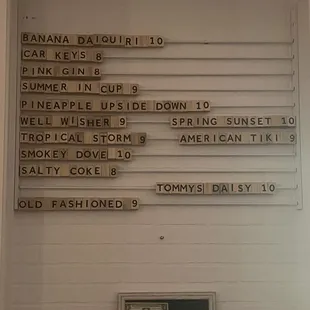 BANANA DAIQUIRI 10
CAR KEYS 8
PINK GIN 8
SUMMER IN CUP 9
PINEAPPLE UPSIDE DOWN 10
WELL WISHER 9 SPRING SUNSET 10
TROPICAL STORM 9 AMERICAN TIKI 9
SMOKEY DOVE 10
SALTY COKE 8
TOMMYS DAISY 10
OLD FASHIONED 9